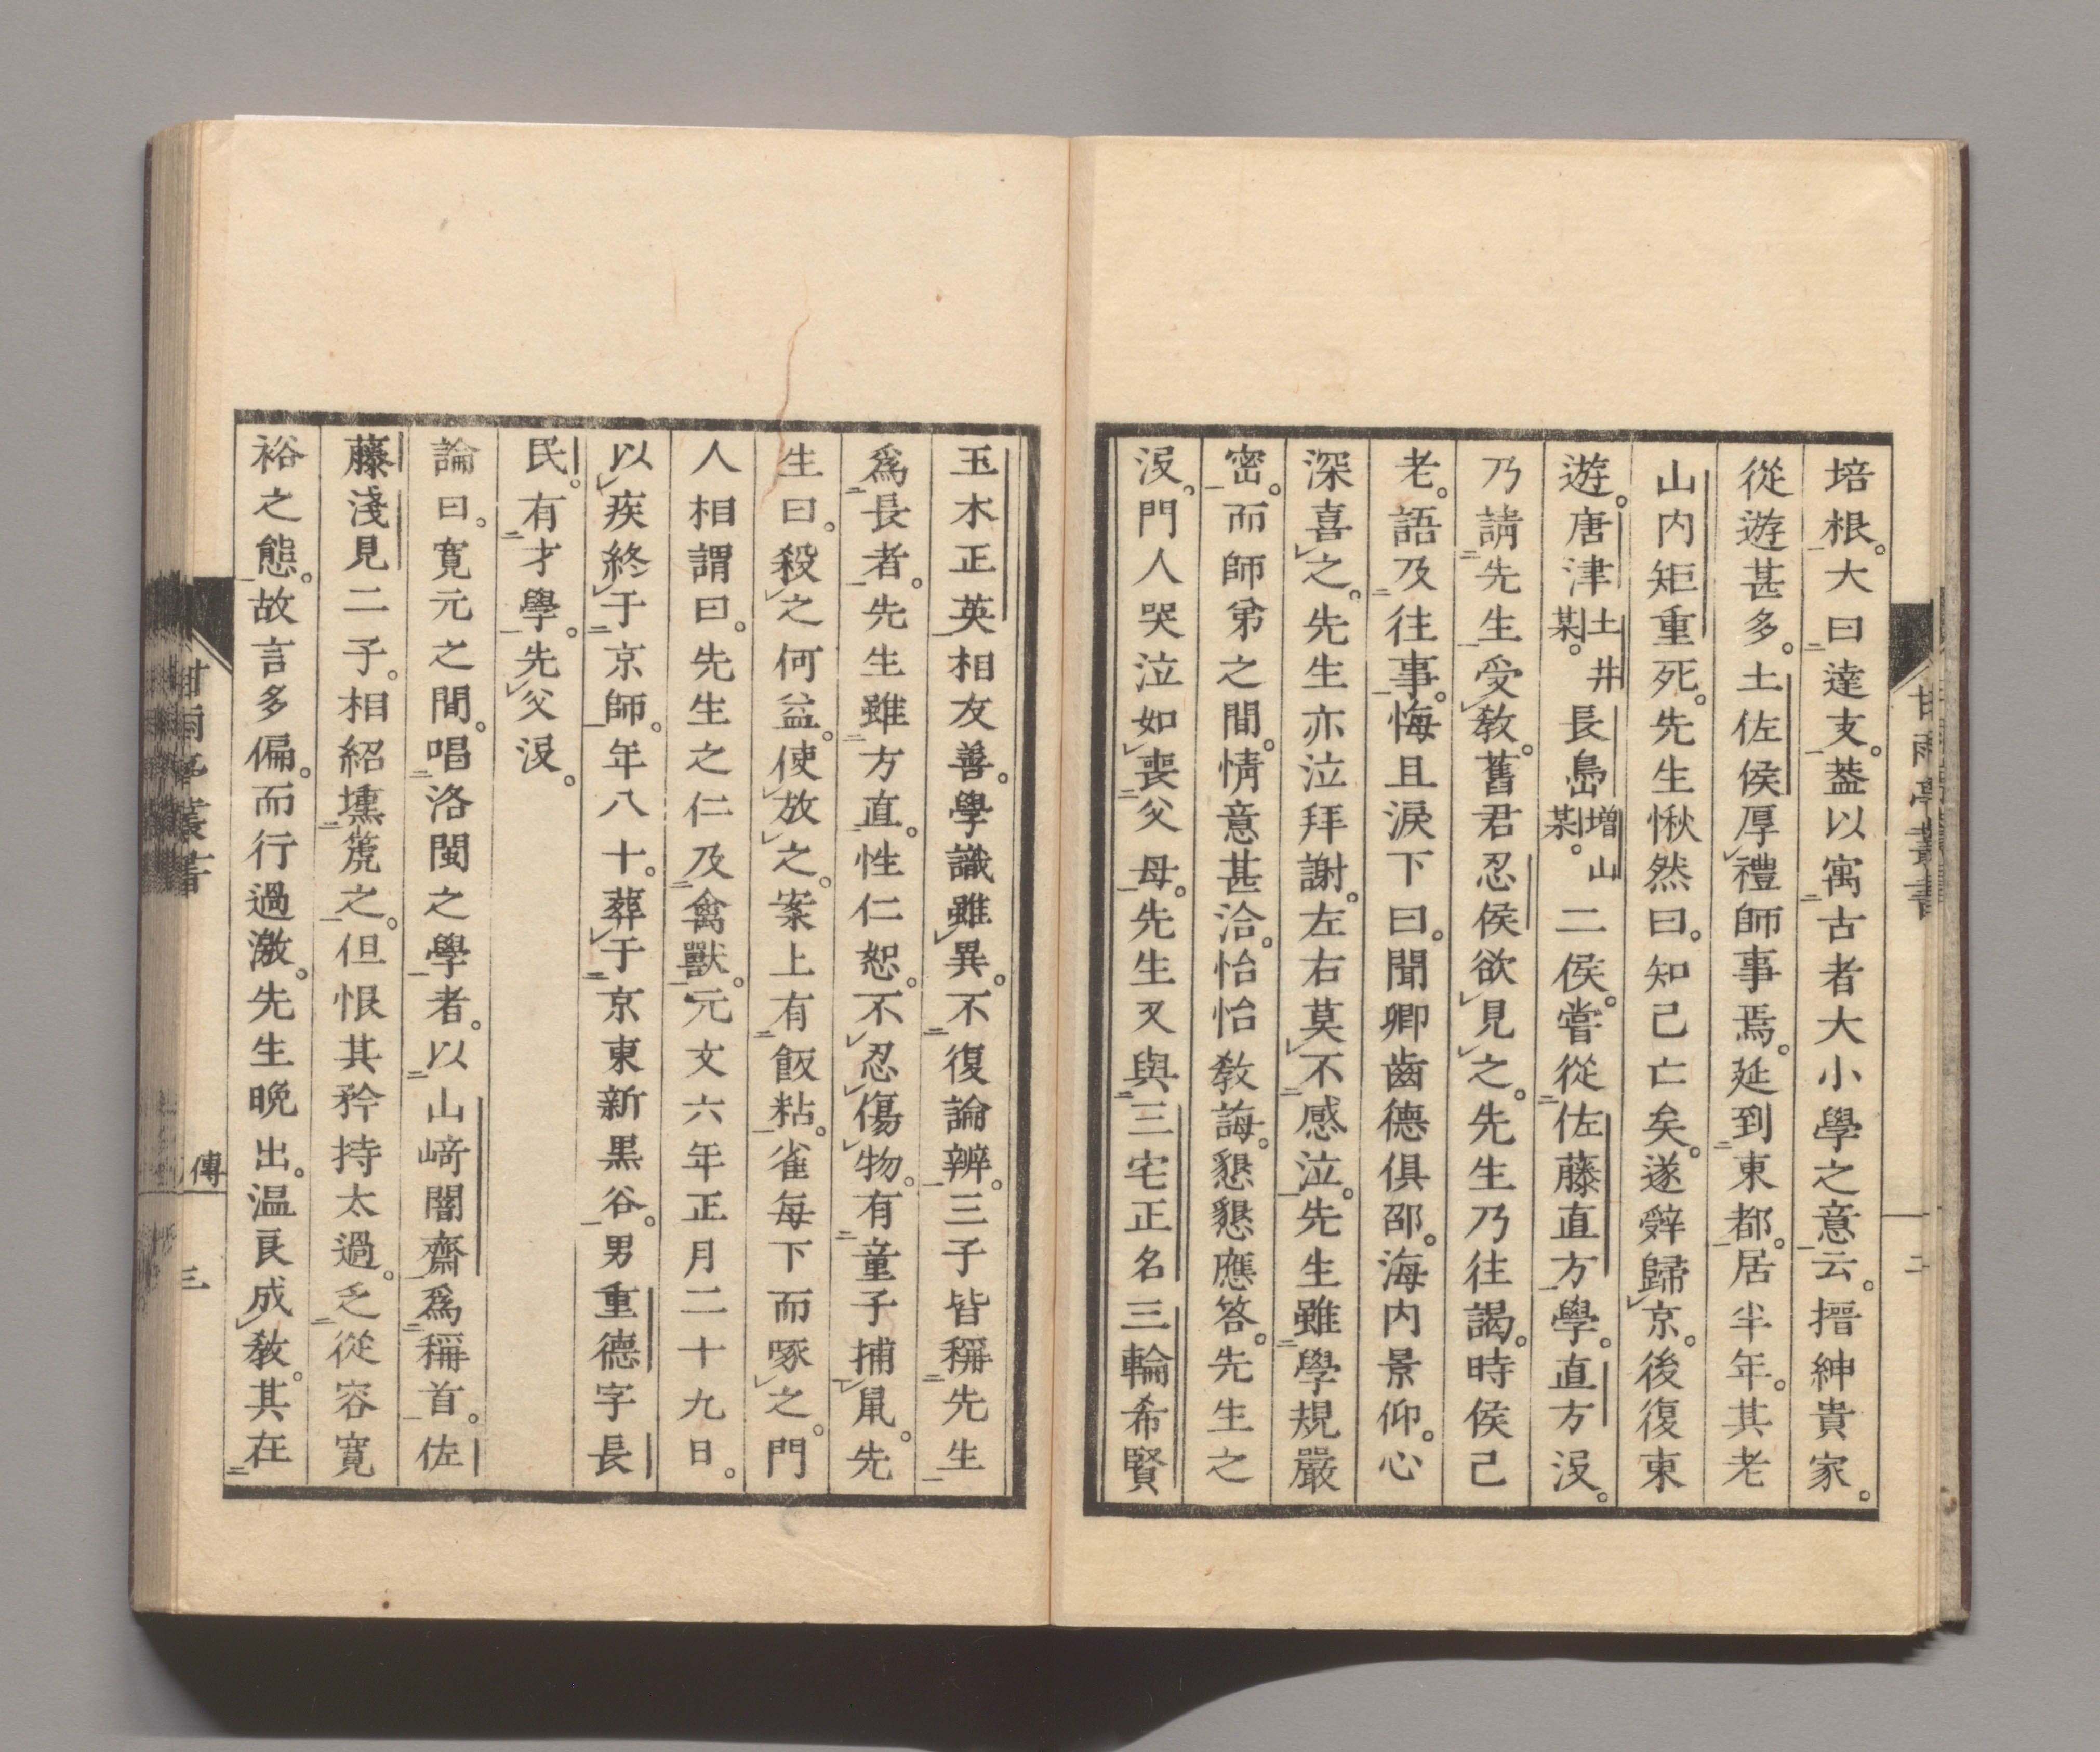 培根。大曰達支。葢以寓古者大小學之意云。搢紳貴家。
從遊甚多。土佐侯厚禮師事焉。延到東都。居半年。其老
山内矩重死。先生愀然曰。知己亡矣。遂辤歸京。後復東
遊。唐津土井某。長島増山某。二侯。嘗從佐藤直方學。直方沒。
乃請先生受敎。舊君忍侯欲見之。先生乃往謁。時侯已
老。語及往事。悔且淚下曰。聞卿齒德俱邵。海内景仰。心
深喜之。先生亦泣拜謝。左右莫不感泣。先生雖學規嚴
密。而師弟之間。情意甚洽。怡怡敎誨。懇懇應答。先生之
沒。門人哭泣如喪父母。先生又與三宅正名三輪希賢
玉木正英相友善。學識雖異。不復論辨。三子皆稱先生
爲長者。先生雖方直。性仁恕。不忍傷物。有童子捕鼠。先
生曰。殺之何益。使放之。案上有飯粘。雀每下而啄之。門
人相謂曰。先生之仁及禽獸。元文六年正月二十九日。
以疾終于京師。年八十。葬于京東新黒谷。男重德字長
民。有才學。先父沒。
論曰。寛元之間。唱洛閩之學者。以山﨑闇齋爲稱首。佐
藤淺見二子。相紹壎篪之。但恨其矜持太過。乏從容寛
裕之態。故言多偏。而行過激。先生晩出。温良成敎。其在
甘雨亭叢書
二
甘雨亭叢書
傳
三